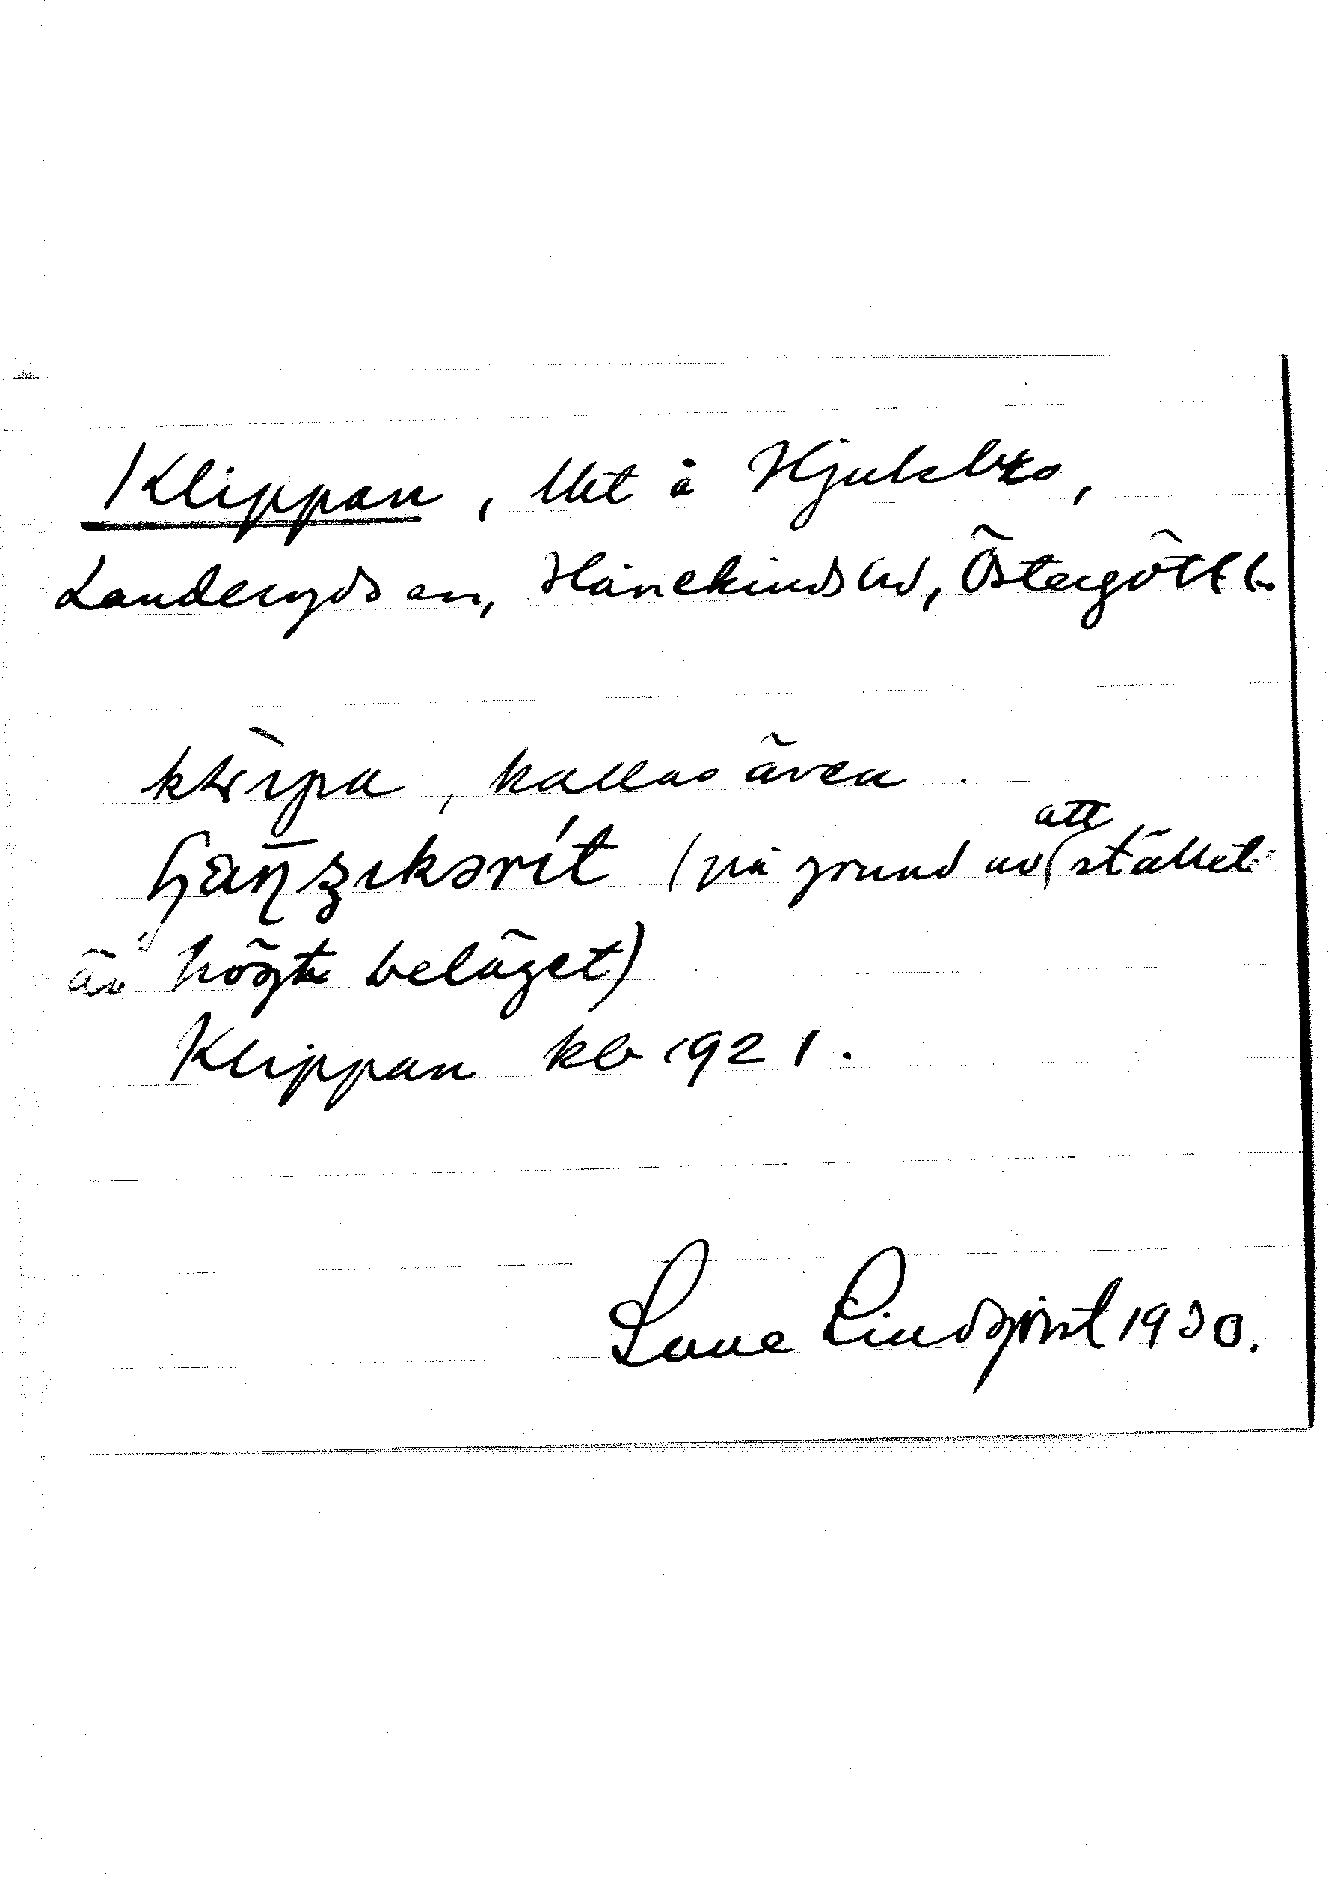 Klippan, lht å Hjulsbro,
Landeryds sn, Hanekinds hd, Östergötl l.
klìpa, kallas även
hanzikərít (på grund av att stället
är högt beläget)
Klippan kb 1921.
Sune Lindqvist 1930.